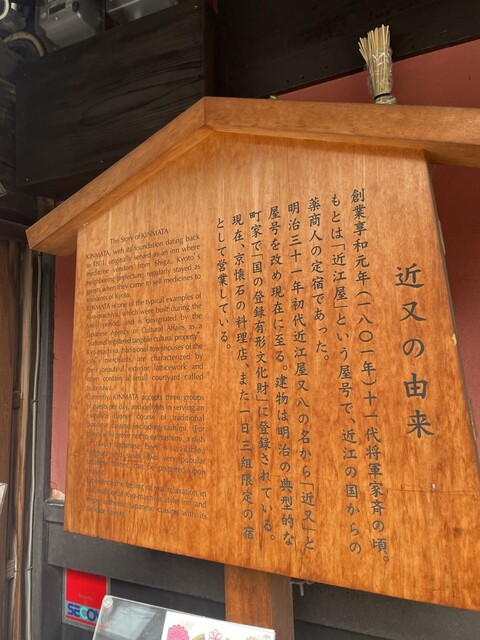 近又の由来
創業享和元年(一八〇一年)十一代将軍家斉の頃。
もとは「近江屋」という屋号で、近江の国からの
薬商人の定宿であった。
明治三十一年初代近江屋又八の名から「近又」と
屋号を改め現在に至る。建物は明治の典型的な
町家で「国の登録有形文化財」に登録されている。
現在、京懐石の料理店、また一日三組限定の宿
として営業している。
The Story of KINMATA
KINMATA, with its foundation dating back
to 1801, originally served as an inn where
medicine vendors from Shiga, Kyoto's
neighboring prefecture, regularly stayed as
guests when they came to sell medicines to
residents of Kyoto.
KINMATA is one of the typical examples of
Kyo-machiya, which were built during the
Meiji period, and is designated by the
Japanese Agency of Cultural Affairs as a
"national registered tangible cultural property".
Kyo-machiya, traditional townhouses of the
city's merchants, are characterized by
their beautiful exterior latticework and
often contain a small courtyard called
Currently, KINMATA accepts three groups
of guests per day, and delights in serving an
exquisite dinner course of traditional
Japanese cuisine
SECO